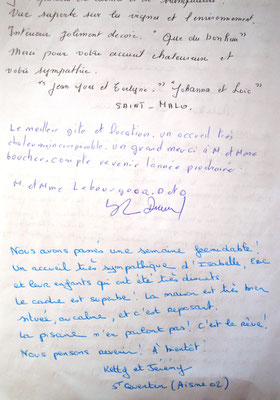 Vue superbe sur la vigne et l'environnement.
Intérieur joliment décoré. "Que du bonheur"
Merci pour votre accueil chaleureux et
votre sympathie.
"Jean Yves et Evelyne." "Johanna et Loïc"
SAINT-MALO.
Le meilleur gîte et location, un accueil très
chaleureux incomparable. un grand merci à M. et Mme
boucher. compte revenir l'année prochaine.
M. et Mme
Nous avons passés une semaine formidable!
Un accueil très sympathique d'Isabelle, Eric
et leur enfants qui ont été très discrets.
Le cadre est superbe! La maison est très bien
située, au calme, et c'est reposant.
La piscine n'en parlont pas! C'est le rêve!
Nous pensons revenir! A bientôt!
Ketty et Jérémy
St Quentin (Aisne 02)